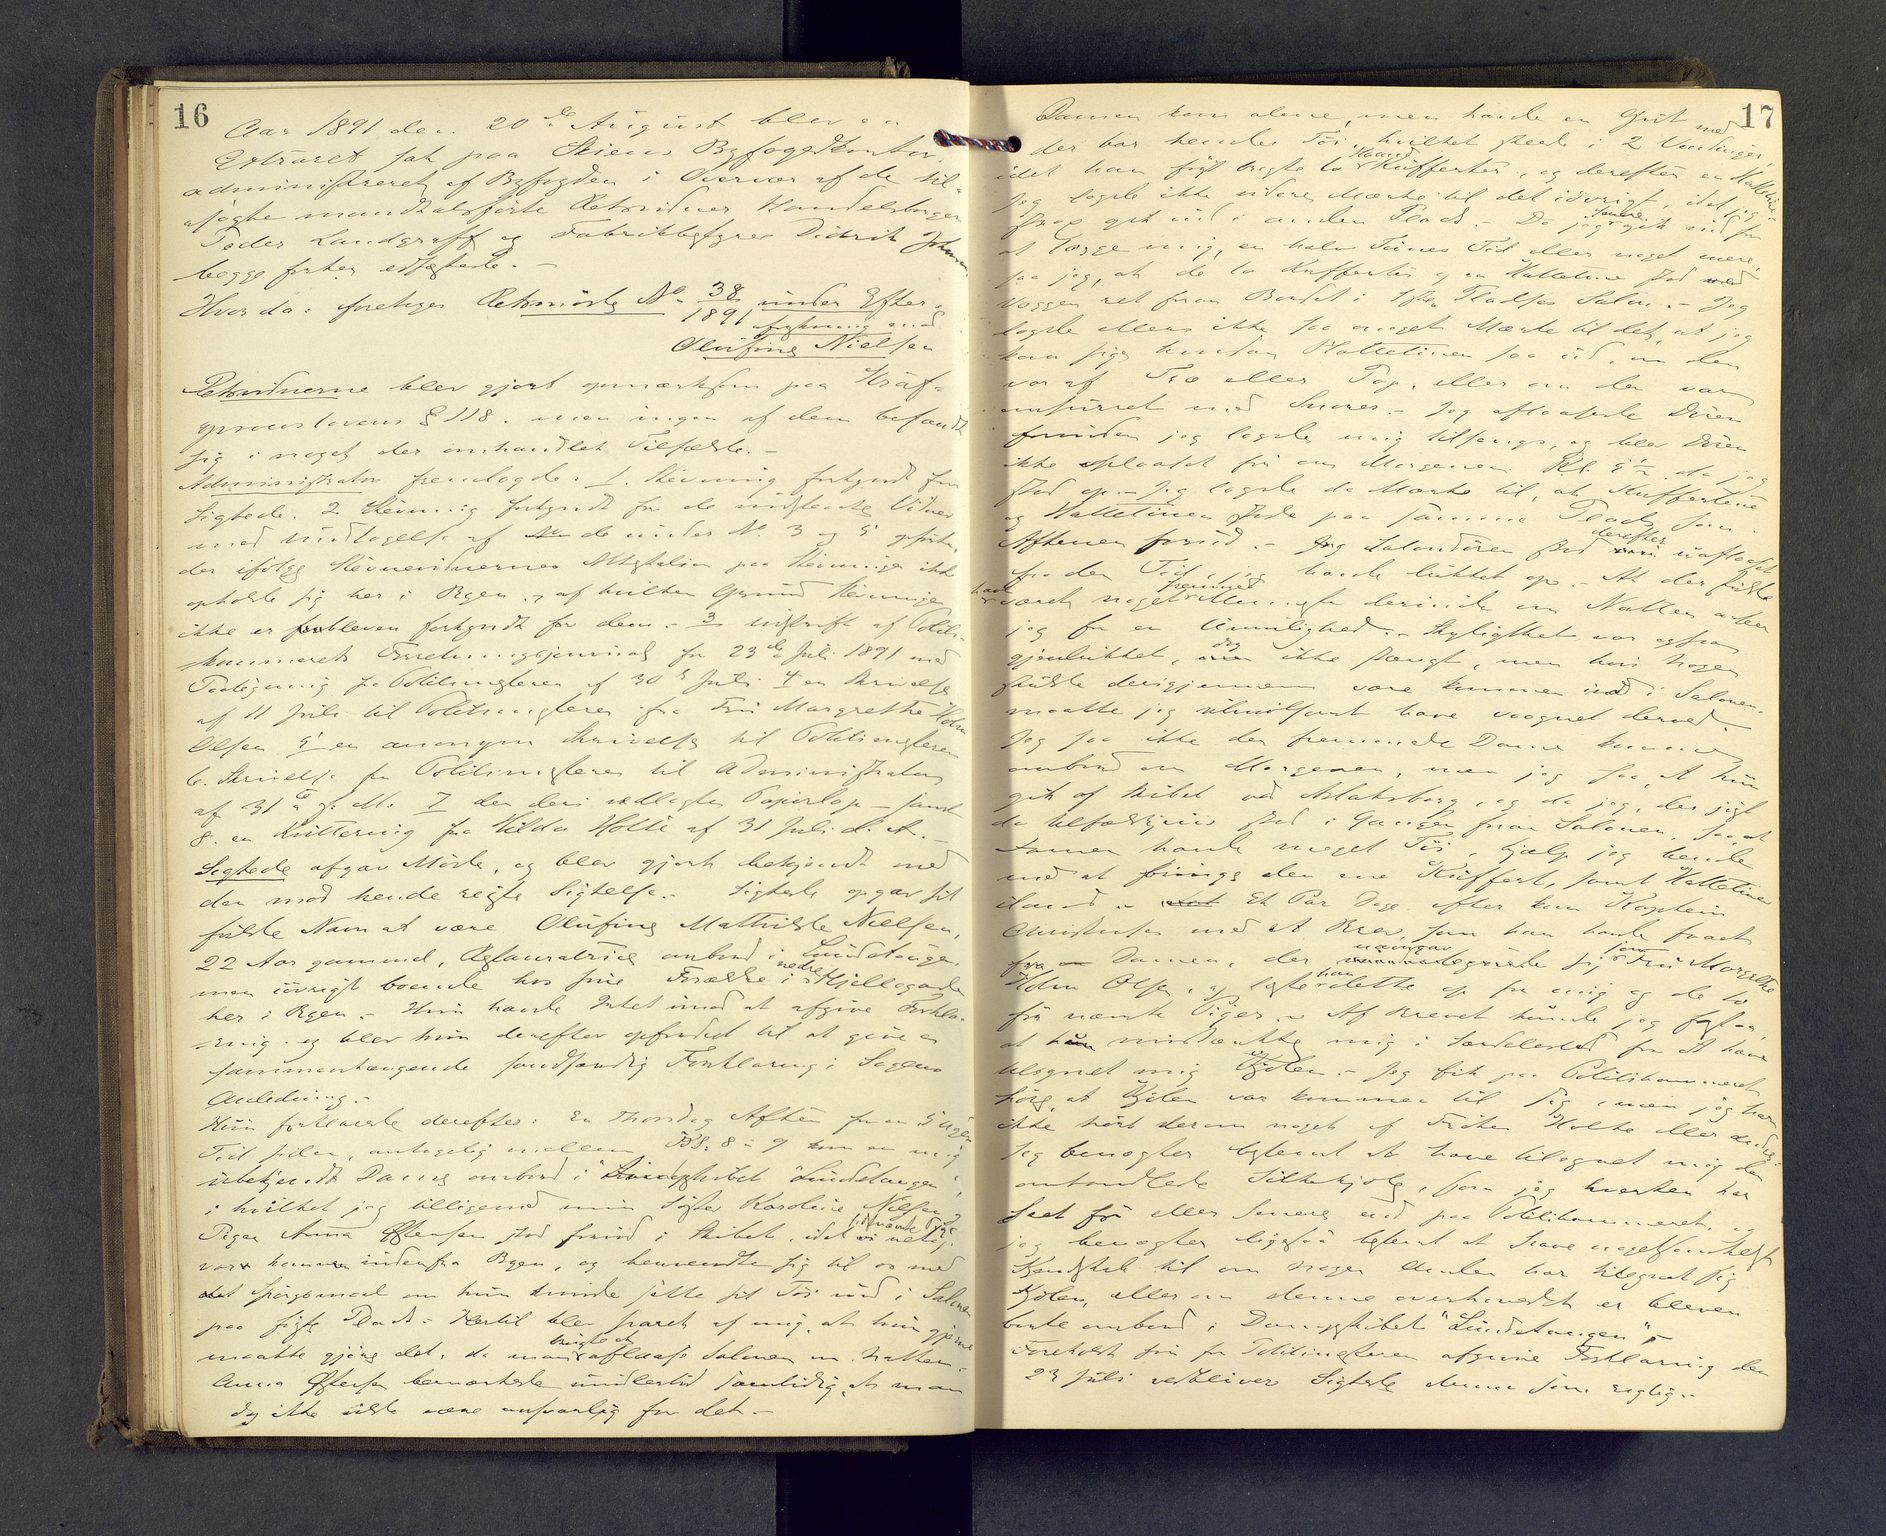 16
Aar 1891 den 20de August blev en
Extraret sat paa Skiens Byfogedkontor,
administreret af Byfogden i Overvær af de til-
sagte mandtalsførte Retsvidner Handelsborger
Peder Landgraff og Fabrikbestyrer Didrik Johnsen,
begge forhen edfæstede. -
Hvorda: foretoges Retsmøde No 38/1891 under Efter-
forskning mod
Olufine Nielsen
Retsvidnerne blev gjort opmærksom paa Straf-
proceslovens § 118. men ingen af dem befandt
sig i noget der omhandlet Tilfælde. -
Administrator fremlagde: 1. Stevning forkyndt for
Sigtede. 2 Stevning forkyndt for de indstevnte Vidner
med Undtagelse af de under No. 3 og 5 opførte,
der ifølge Stevnevidnernes Attestation paa Stevningen ikke
opholde sig her i Byen, af hvilken Grund Stevningen
ikke er bleven forkyndt for dem. - 3 Udskrift af Politi-
kammerets Forretningsjournal for 23de Juli 1891 med
Paategning fra Politimesteren af 30 Juli 4 en Skrivelse
af 11 Juli til Politimesteren fra Frú Margrethe Holm
Olsen 5 en anonym Skrivelse til Politimesteren
6. Skrivelse fra Politimesteren til Administrator
af 31te f. M. 7 den deri vedlagte Papirlap - samt
8. en Kvittering fra Hilda Holte af 31 Juli d. A. -
Sigtede afgav Møde, og blev gjort bekjendt med
den mod hende reiste Sigtelse. - Sigtede opgav sit
fulde Navn at være Olufine Mathilde Nielsen,
22 Aar gammel, Restauratrice ombord i Lundetangen,
men iøvrigt boende hos sine Forældre i nedre Hjellegade
her i Byen. - Hun havde Intet imod at afgive Forkla-
ring. og blev hun derefter opfordret til at give en
sammenhængende sandfærdig Forklaring i Sagens
Anledning. -
Hun forklarede derefter: En Thorsdag Aften for en 5 Uger
Tid siden, antagelig mellem Kl. 8 á 9 kom en mig
ubekjendt Dame ombord i Dampskibet "Lundetangen",
i hvilket jeg tilligemed min Søster Karoline Nielsen og
Pigen Anna Østensen stod forud i Skibet, idet vi netop
var kommen indenfra Byen, og henvendte sig til os med
det Spørgsmaal om hun kunde sætte sit Tøi ind i Salonen
paa sidste Plads. - Hertil blev svaret af mig, at hun gjerne
maatte gjøre det, da man brugte at aflaase Salonen om Natten. -
Anna Østensen bemærkede imidlertid samtidig, at man
dog ikke vilde være ansvarlig for det. -
17
Damen kom alene, men havde en Gut med
der bar hendes Tøi, hvilket skede i 2 Vendinger,
idet han først bragte to Haand Kufferter, og derefter en Hattetine
Jeg lagde ikke videre Mærke til det iøvrigt, idet jeg
strax gik ud i anden Plads. - Da jeg senere gik ind for
at lægge mig, en halv Times Tid eller noget mere,
saa jeg, at de to Kufferter og en Hattetine stod ved
Væggen ret foran Bordet i sidste Pladses Salon. - Jeg
lagde ellers ikke saa meget Mærke til det, at jeg
kan sige hvordan Hattetinen saa ud, om den
var af Træ eller Pap, eller om den var
omsurret med Snorer. - Jeg aflaasede Døren
forinden jeg lagde mig tilsengs, og blev Døren
ikke oplaast før om Morgenen Kl. 5½ da jeg
stod op. - Jeg lagde da Mærke til, at Kufferterne
og Hattetinen stode paa samme Plads som
Aftenen forud. - Salondøren stod derefter uaflaaset
fra den Tid jeg havde lukket op. - At der skulde
have været noget fremmed Menneske derinde om Natten anser
jeg for en Umulighed. - Skylightet var ogsaa
gjenlukket, dog ikke stængt, men hvis Nogen
skulde derigjennem være kommen ind i Salonen
maatte jeg utvivlsomt have vaagnet derved. -
Jeg saa ikke den fremmede Dame komme
ombord om Morgenen, men jeg saa, at hun
gik af Skibet ved Aslaksborg, og da jeg, der just
da tilfældigvis stod i Gangen foran Salonen, saa at
Damen havde meget Tøi, hjalp jeg hende
med at bringe den ene Kuffert, samt Hattetinen
iland. - Et Par Dage efter kom Kaptein
Christensen med et Brev, som han havde faaet
fra Damen, der navngav sig som Frú Margrethe
Holm Olsen, og læste han dette op for mig og de to
før nævnte Piger. - Af Brevet kunde jeg forstaa,
at hun mistænkte mig i Særdeleshed for at have
tilegnet mig Kjolen. - Jeg fik paa Politikammeret
høre, at Kjolen var kommen til sig, men jeg har
ikke hørt derom noget af Frøken Holte eller andre. -
Jeg benægter bestemt at have tilegnet mig den
omhandlede Silkekjole, som jeg hverken har
seet før eller senere end paa Politikammeret, og
jeg benægter ligesaa bestemt at have nogetsomhelst
Kjendskab til om nogen Anden har tilegnet sig
Kjolen, eller om denne overhovedet er bleven
borte ombord i Dampskibet "Lundetangen".
Foreholdt sin for Politimesteren afgivne Forklaring den
23 Juli vedbliver Sigtede denne som rigtig. -